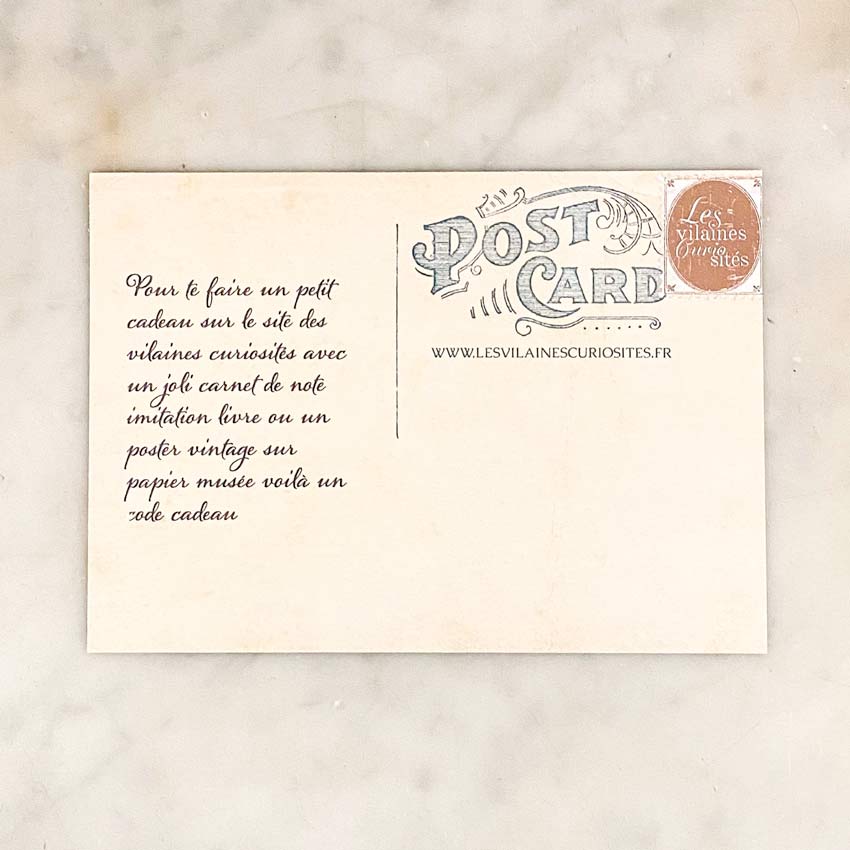 Pour te faire un petit
cadeau sur le site des
vilaines curiosités avec
un joli carnet de note
imitation livre ou un
poster vintage sur
papier musée voilà un
code cadeau
POST
CARD
WWW.LESVILAINESCURIOSITES.FR
Les
vilaines
Curio
sités